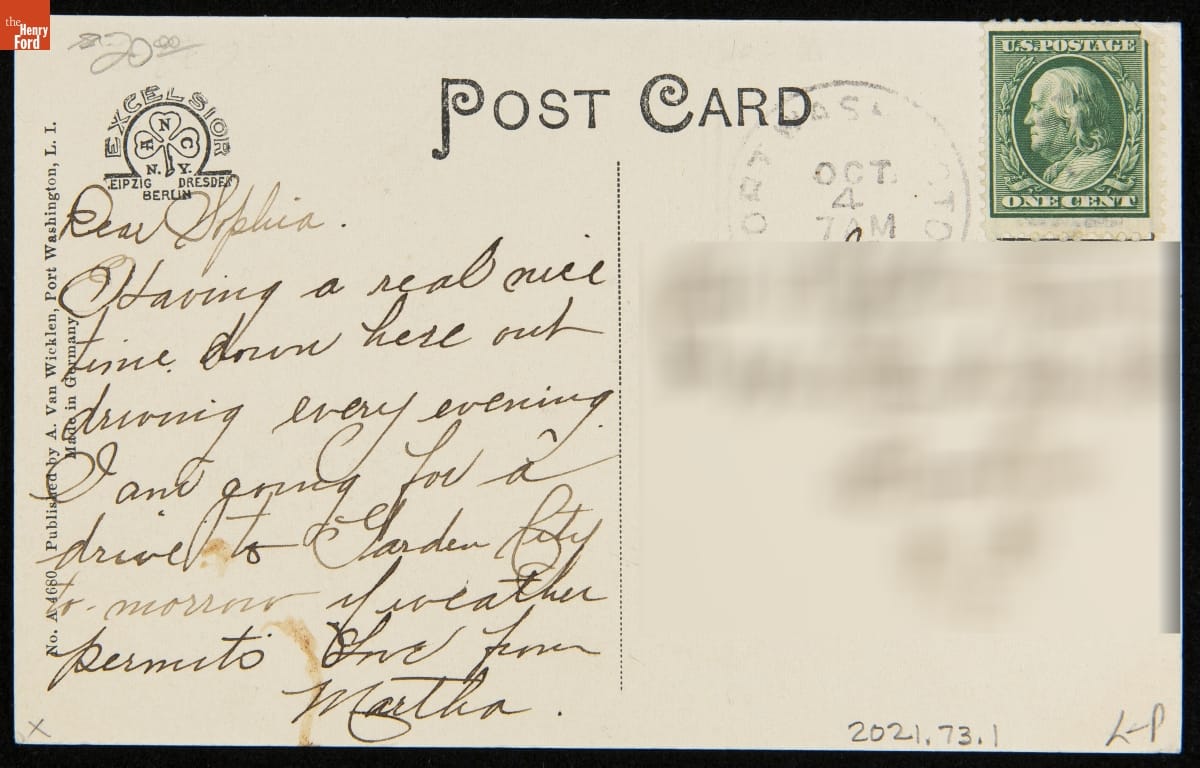 the Henry Ford
20.00
EXCELSIOR
ANC
N.Y.
LEIPZIG DRESDEN
BERLIN
POST CARD
U.S. POSTAGE
ONE CENT
OCT
4
7 AM
No. A 4680 Published by A. Van Wicklen, Port Washington, L. I.
Made in Germany
Dear Sophia.
Having a real nice
time down here out
driving every evening.
I am going for a
drive to Garden City
to-morrow if weather
permits Love from
Martha.
2021.73.1
L-P
X